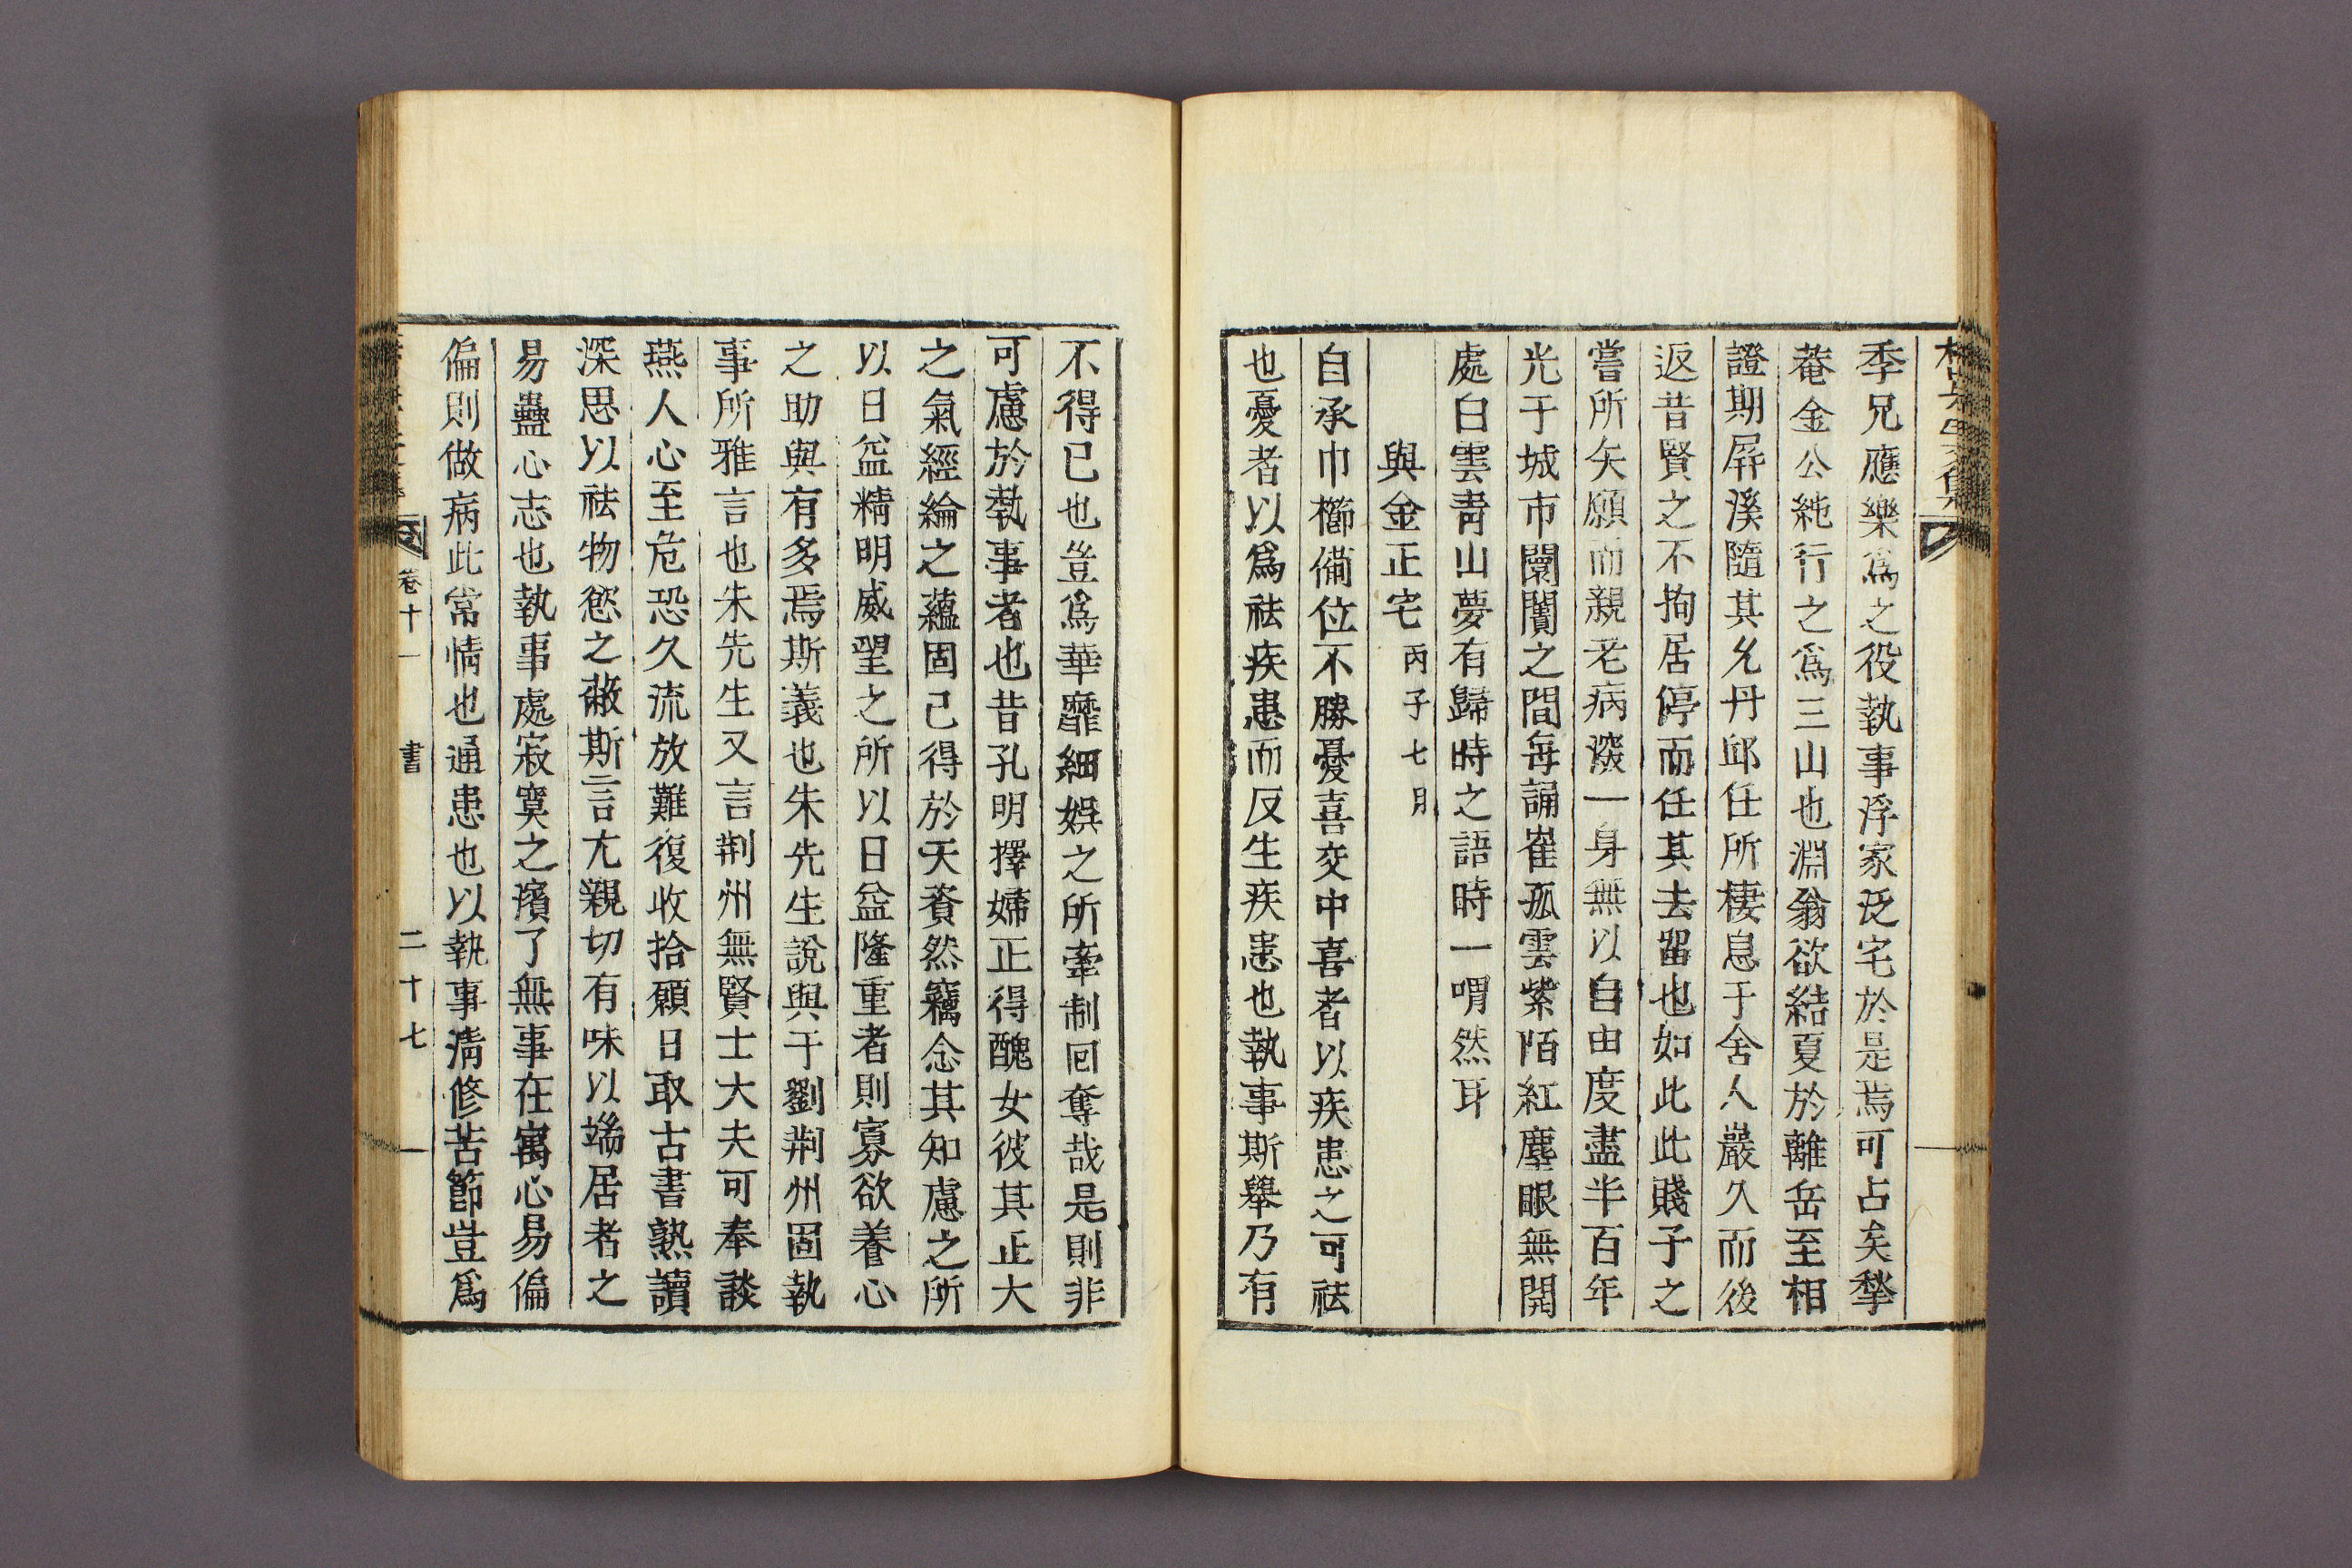 季兄應樂爲之役執事浮家泛宅於是焉可占矣犂
菴金公純行之爲三山也淵翁欲結夏於離岳至相
證期屛溪隨其允丹邱任所棲息于舍人巖久而後
返昔賢之不拘居停而任其去留也如此此賤子之
嘗所矢願而親老病深一身無以自由度盡半百年
光于城市闤闠之間每誦崔孤雲紫陌紅塵眼無開
處白雲靑山夢有歸時之語時一喟然耳
與金正宅 丙子七月
自承巾櫛備位不勝憂喜交中喜者以疾患之可祛
也憂者以爲祛疾患而反生疾患也執事斯舉乃有
不得已也豈爲華靡細娛之所牽制回奪哉是則非
可慮於執事者也昔孔明擇婦正得醜女彼其正大
之氣經綸之蘊固已得於天資然竊念其知慮之所
以日益精明威望之所以日益隆重者則寡欲養心
之助與有多焉斯義也朱先生說與于劉荆州固執
事所雅言也朱先生又言荆州無賢士大夫可奉談
燕人心至危恐久流放難復收拾願日取古書熟讀
深思以祛物慾之蔽斯言尤親切有味以端居者之
易蠱心志也執事處寂寞之濱了無事在寓心易偏
偏則做病此常情也通患也以執事淸修苦節豈爲
卷十一 書 二十七